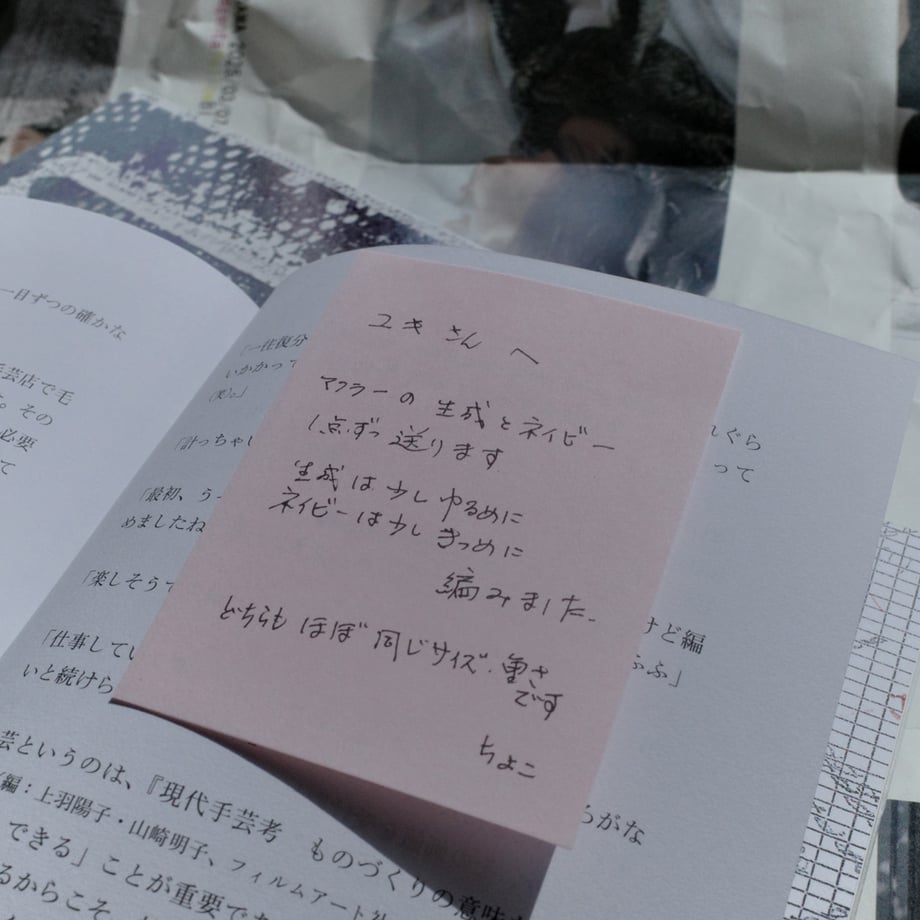 ユキさんへ
マフラーの生成とネイビー
1点ずつ送ります
生成は少しゆるめに
ネイビーは少しきつめに
編みました.
どちらもほぼ同じサイズ.重さ
です
ちよこ
一日ずつの確かな
芸店で毛
。その
必要
て
「一往復分
いかかって
(笑)。」
「計っちゃ
「最初、う
めましたね
「楽しそうで
「仕事してい
いと続けら
ぐら
って
けど編
ふふ」
芸というのは、『現代手芸考 ものづくりの意味
編:上羽陽子・山崎明子、フィルムアート社
できる」ことが重要であ
るからこそ
がな